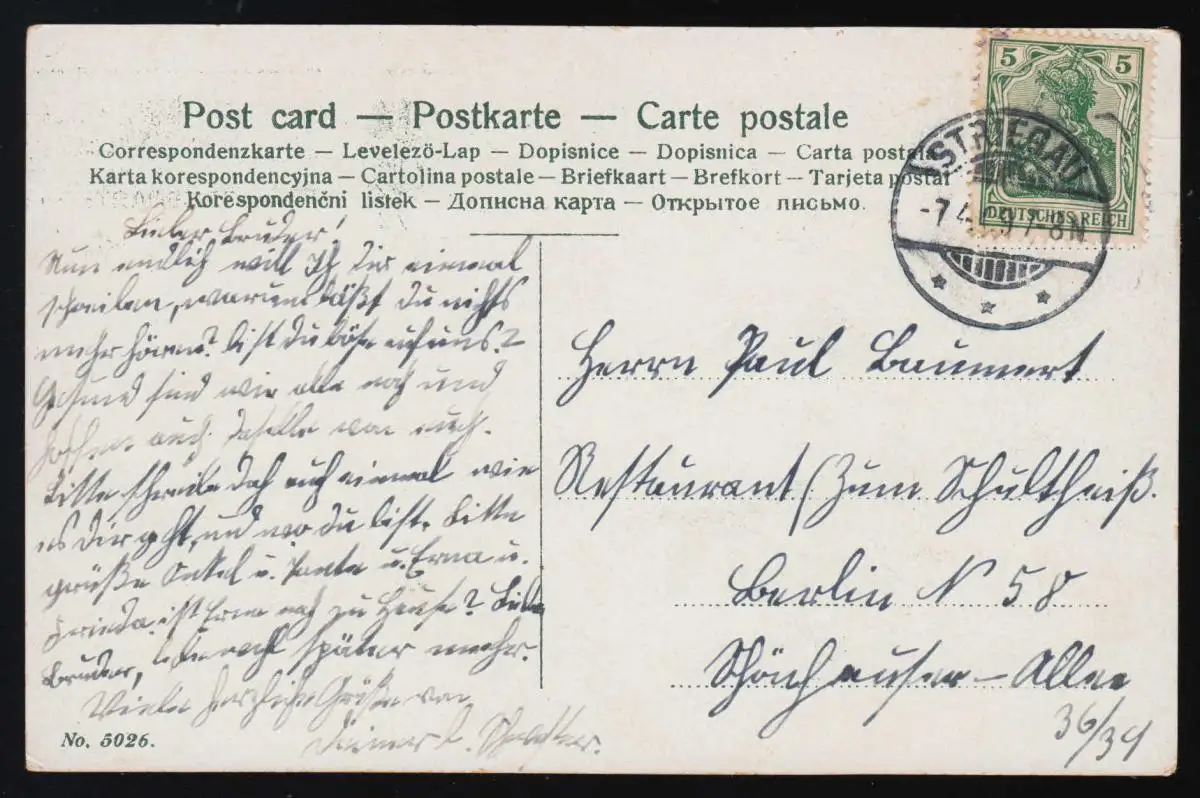 Post card — Postkarte — Carte postale
Correspondenzkarte – Levelezö-Lap – Dopisnice – Dopisnica – Carta postala
Karta korespondencyjna – Cartolina postale – Briefkaart – Brefkort – Tarjeta postal
Korespondenčni listek – Дописна карта – Открытое письмо.
5 5
DEUTSCHES REICH
STRIEGAU
-7 4. 7-8N
Lieber Bruder!
Nun endlich will Ich Dir einmal
schreiben, warum läßt Du nichts
mehr hören? bist Du böse auf uns?
Gesund sind wir alle noch und
hoffen auch daselbe von euch.
Bitte schreibe doch auch einmal wie
es Dir geht, und wo Du bist. Bitte
grüße Onkel u. Tante u. Erna u.
Frieda. ist Erna noch zu Hause? Lieber
Bruder, lebe wohl später mehr.
Viele herzliche Grüße von
Deiner l. Schwester.
Herrn Paul Baumert
Restaurant (Zum Schultheiß.
Berlin N 58
Schönhauser-Allee
36/37
No. 5026.